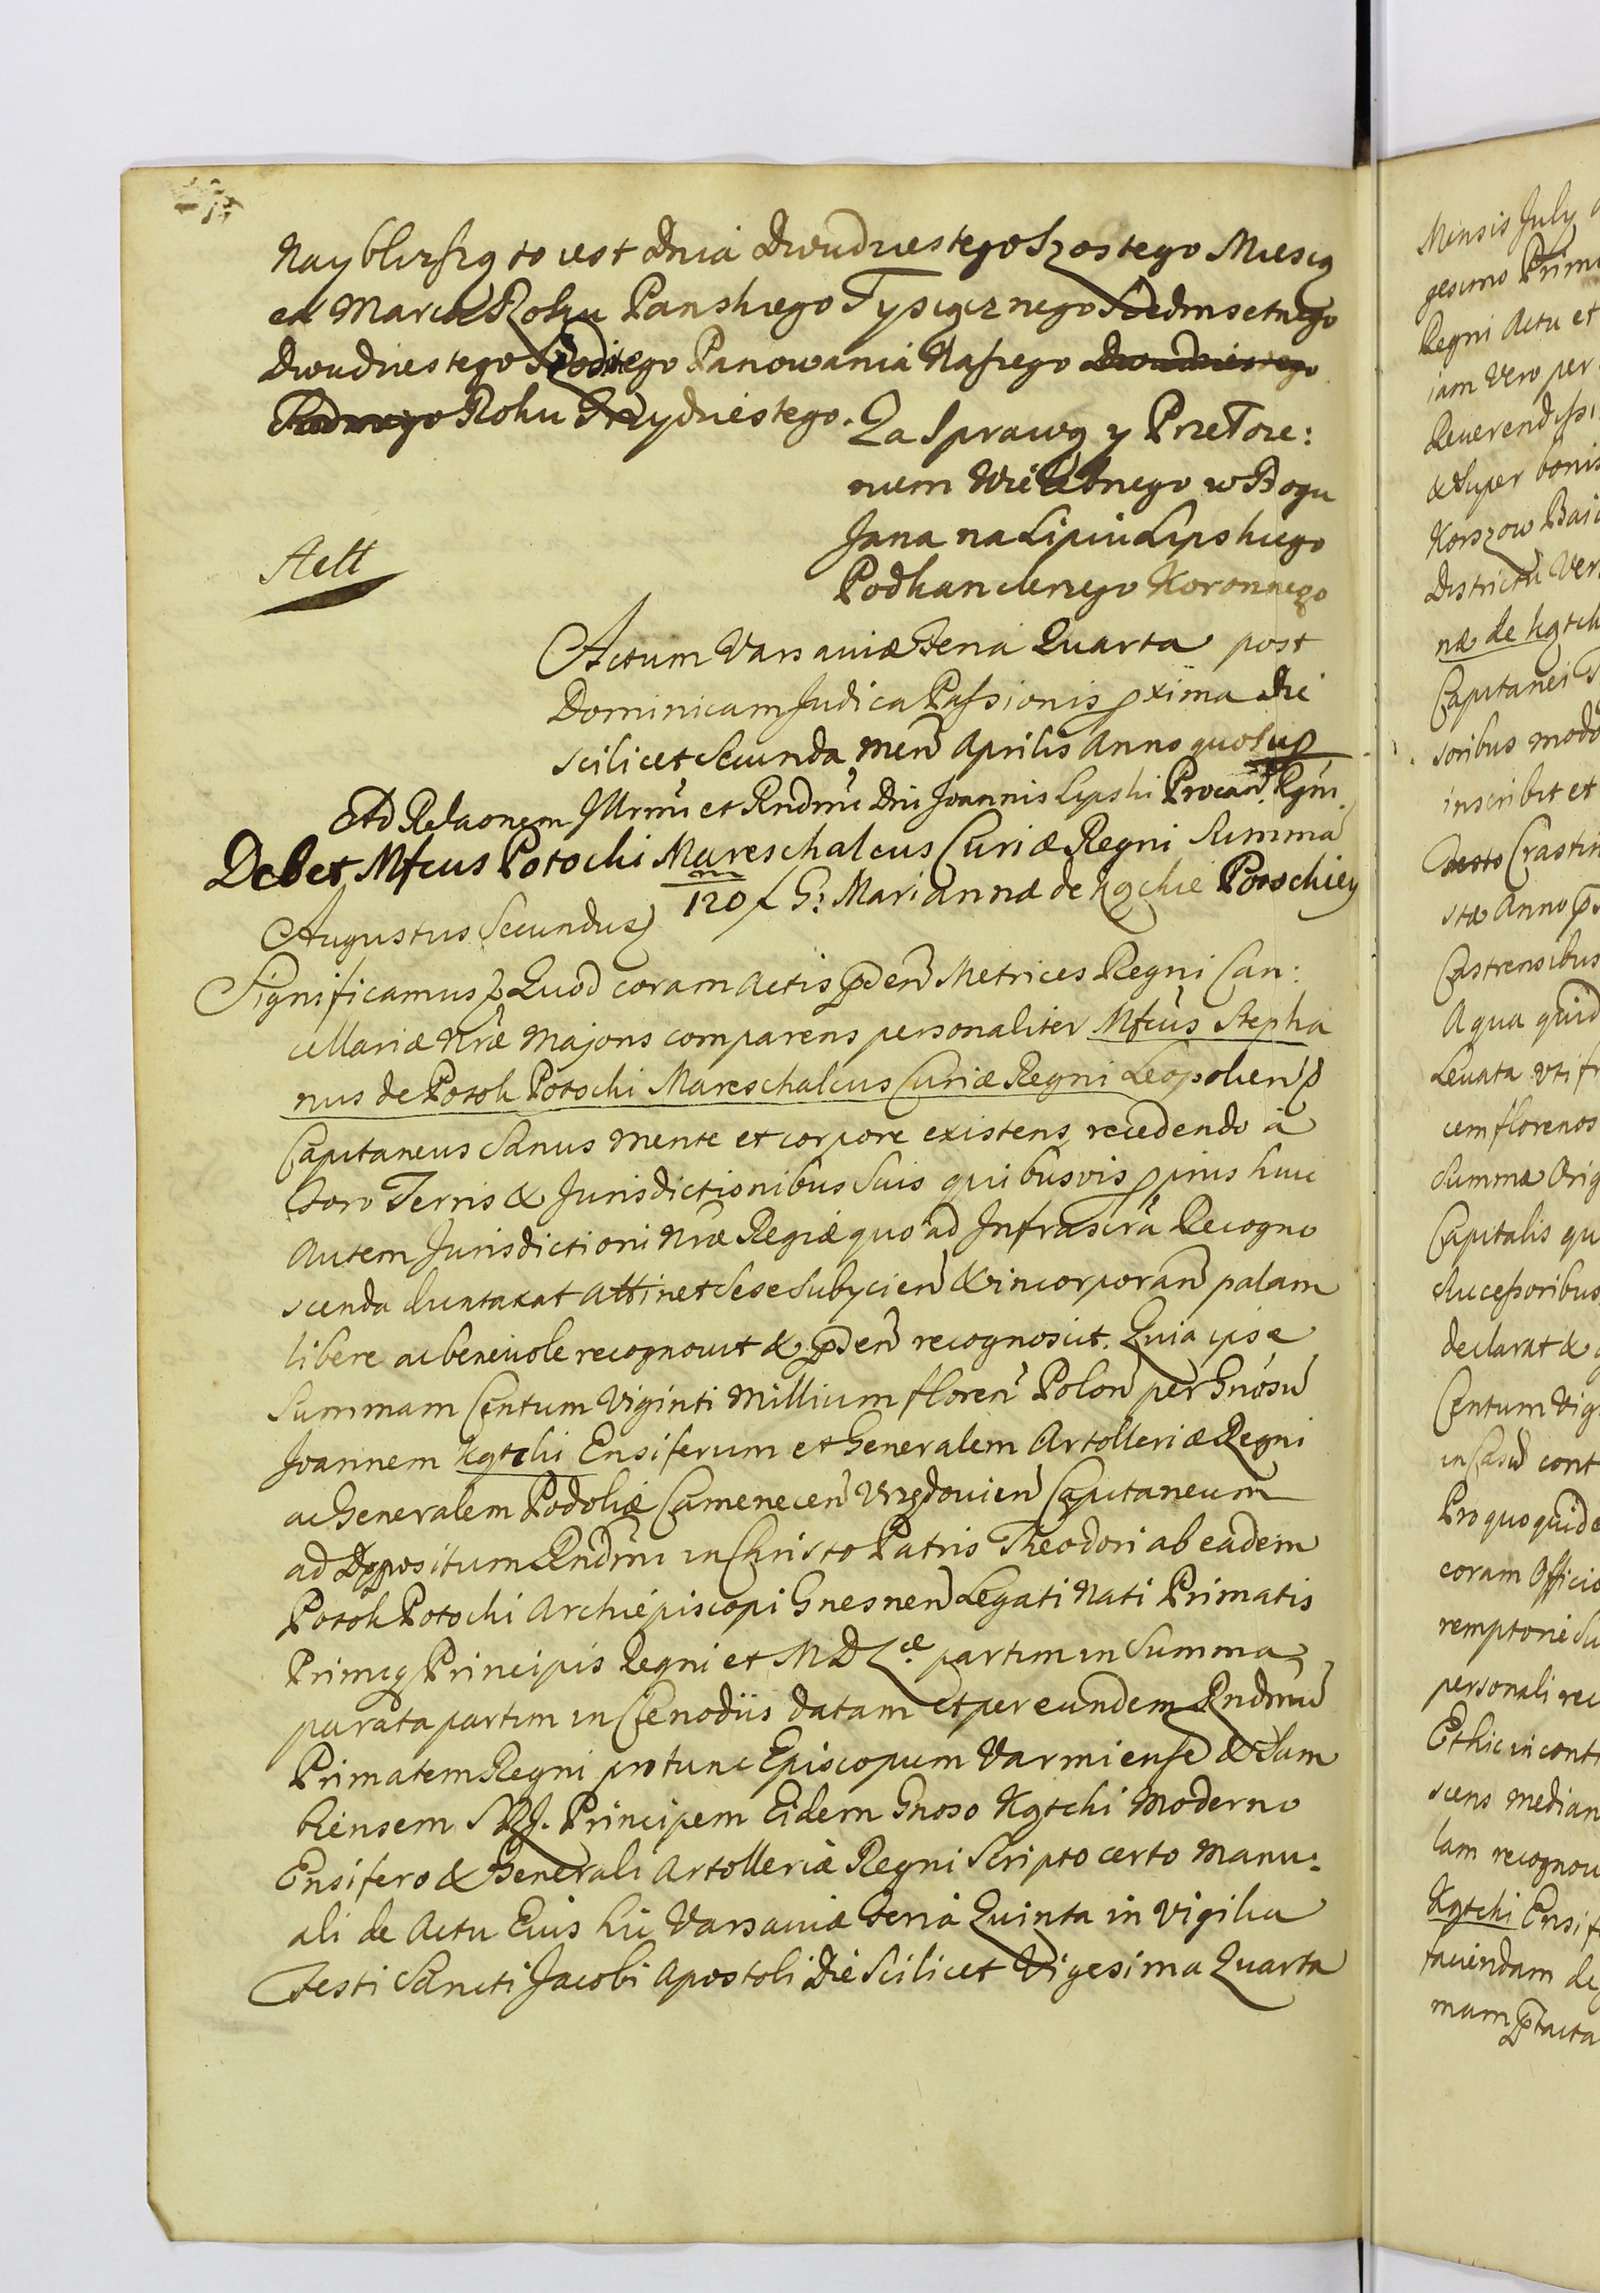 Naybliższą to iest dnia dwudziestego Szostego Miesią
ca Marca Roku Panskiego Tysiącznego Siedmsetnego
Dwudziestego Siodmego Panowania Naszego
Roku Trzydziestego. Za Sprawą y Przełoże:
niem Wielebnego w Bogu
Jana na Lipiu Lipskiego
Podkanclerzego Koronnego
Actum Varsaviæ Feria Quarta post
Dominicam Judica Passionis pxima die
scilicet Secunda Men Aprilis Anno quo Sup
Ad Relaonem Illrmi et Rndmi Dni Joannis Lipski Procan. Rgni.
Debet Mfcus Potocki Mareschalcus Curiæ Regni Summã
120/m f G: Mariannæ de Kąckie Potockiey
Augustus Secundus
Significamus Quod coram Actis pden Metrices Regni Can:
cellariæ Nræ Majoris comparens personaliter Mfcus Stepha
nus de Potok Potocki Mareschalcus Curiæ Regni Leopolien
Capitaneus Sanus mente et corpore existens, recedendo à
Foro Terris & Jurisdictionibus Suis quibusvis pprijs huic
Autem Jurisdictioni Nræ Regiæ quo ad Infrascrã Recogno
scenda duntaxat attinet Sese Subijcien & incorporan palam
libere ac benevole recognovit & pden recognoscit. Quia ipse
Summam Centum Viginti Millium floren Polon per Gnosũ
Joannem Kątcki Ensiferum et Generalem Artolleriæ Regni
ac Generalem Podoliæ Camenecen Urzędovien Capitaneum
ad Depositum Rndmi in Christo Patris Theodori ab eadem
Potok Potocki Archiepiscopi Gnesnen Legati Nati Primatis
Primiq Principis Regni et M D L.æ partim in Summa
parata partim in Clenodiis datam et per eundem Rndmũ
Primatem Regni protunc Episcopum Varmiense & Sam
biensem S R J. Principem Eidem Gnoso Kątcki Moderno
Ensifero & Generali Artolleriæ Regni Scripto certo Manu:
ali de Actu Eius hic Varsaviæ Feria Quinta in Vigilia
Festi Sancti Jacobi Apostoli Die Scilicet Vigesima Quarta
Mensis July
gesimo Primo
Regni Actu et
iam Vero per
Reverendissi
& Super bonis
Korszow
Districtu Ver
næ de Kątck
Capitanei
soribus modo
inscribit et
Crastin
stæ Anno
Castrensibus
A qua quid
Levata uti
cem florenos
Summæ Orig
Capitalis qu
Sucessoribus
declarat &
Centum Vig
in Casu cont
Pro quo quide
coram Officio
remptorie Su
personali
Et hic in cont
scens median
lam recognov
Kątcki Ensif
faciendam de
mam